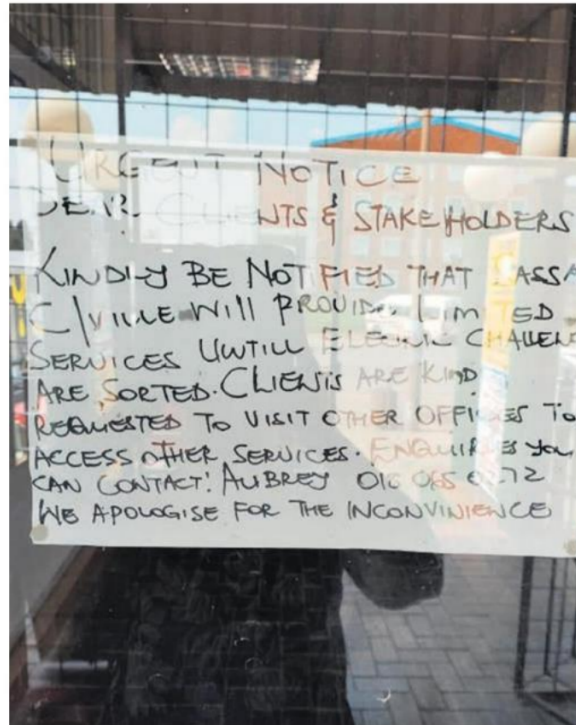 URGENT NOTICE
DEAR CLIENTS & STAKEHOLDERS
KINDLY BE NOTIFIED THAT SASSA
C/VILLE WILL PROVIDE LIMITED
SERVICES UNTILL ELECRIC CHALLEN
ARE SORTED. CLIENTS ARE KIND
REQUESTED TO VISIT OTHER OFFICES TO
ACCESS OTHER SERVICES. ENQUIRIES YOU
CAN CONTACT: AUBREY
WE APOLOGISE FOR THE INCONVINIENCE